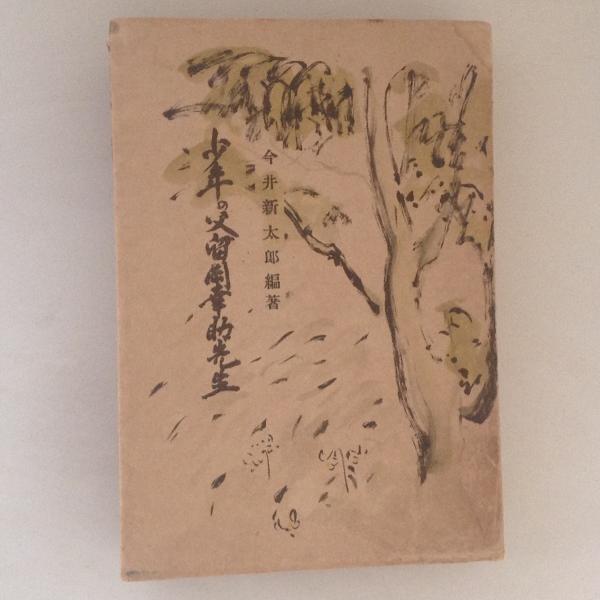 今井新太郎編著
少年の父留岡幸助先生